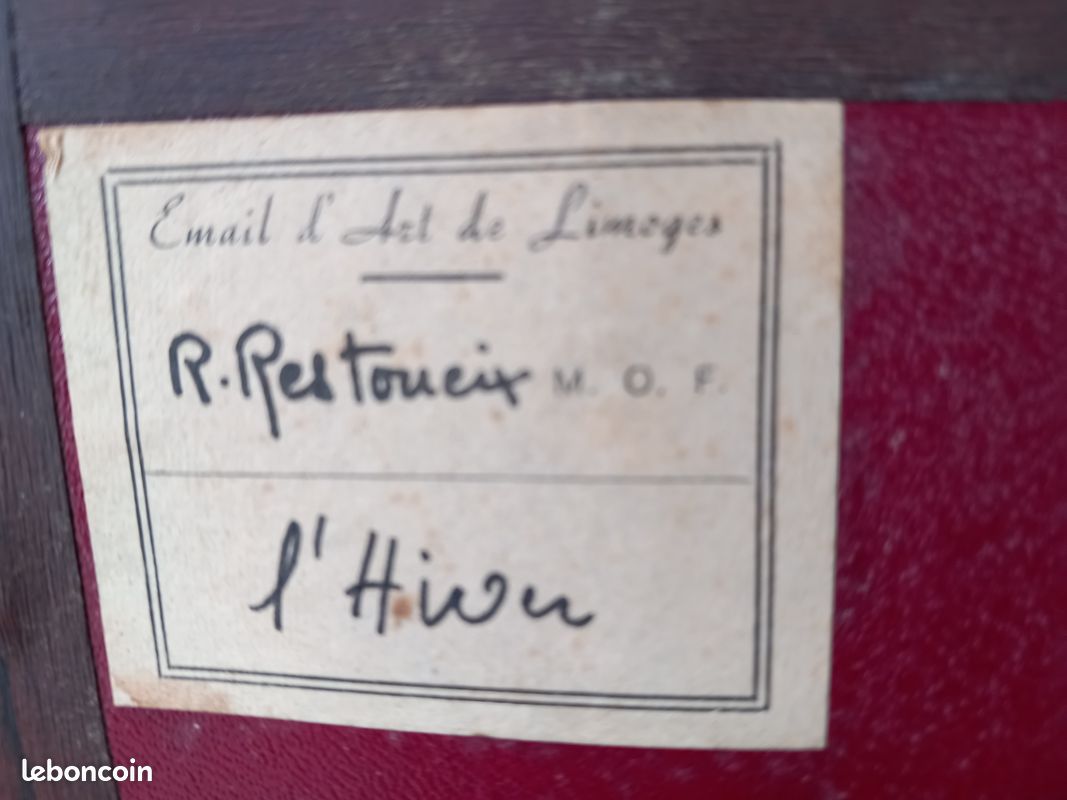 Email d'Art de Limoges
R. Restoueix M. O. F.
l'Hiver
leboncoin